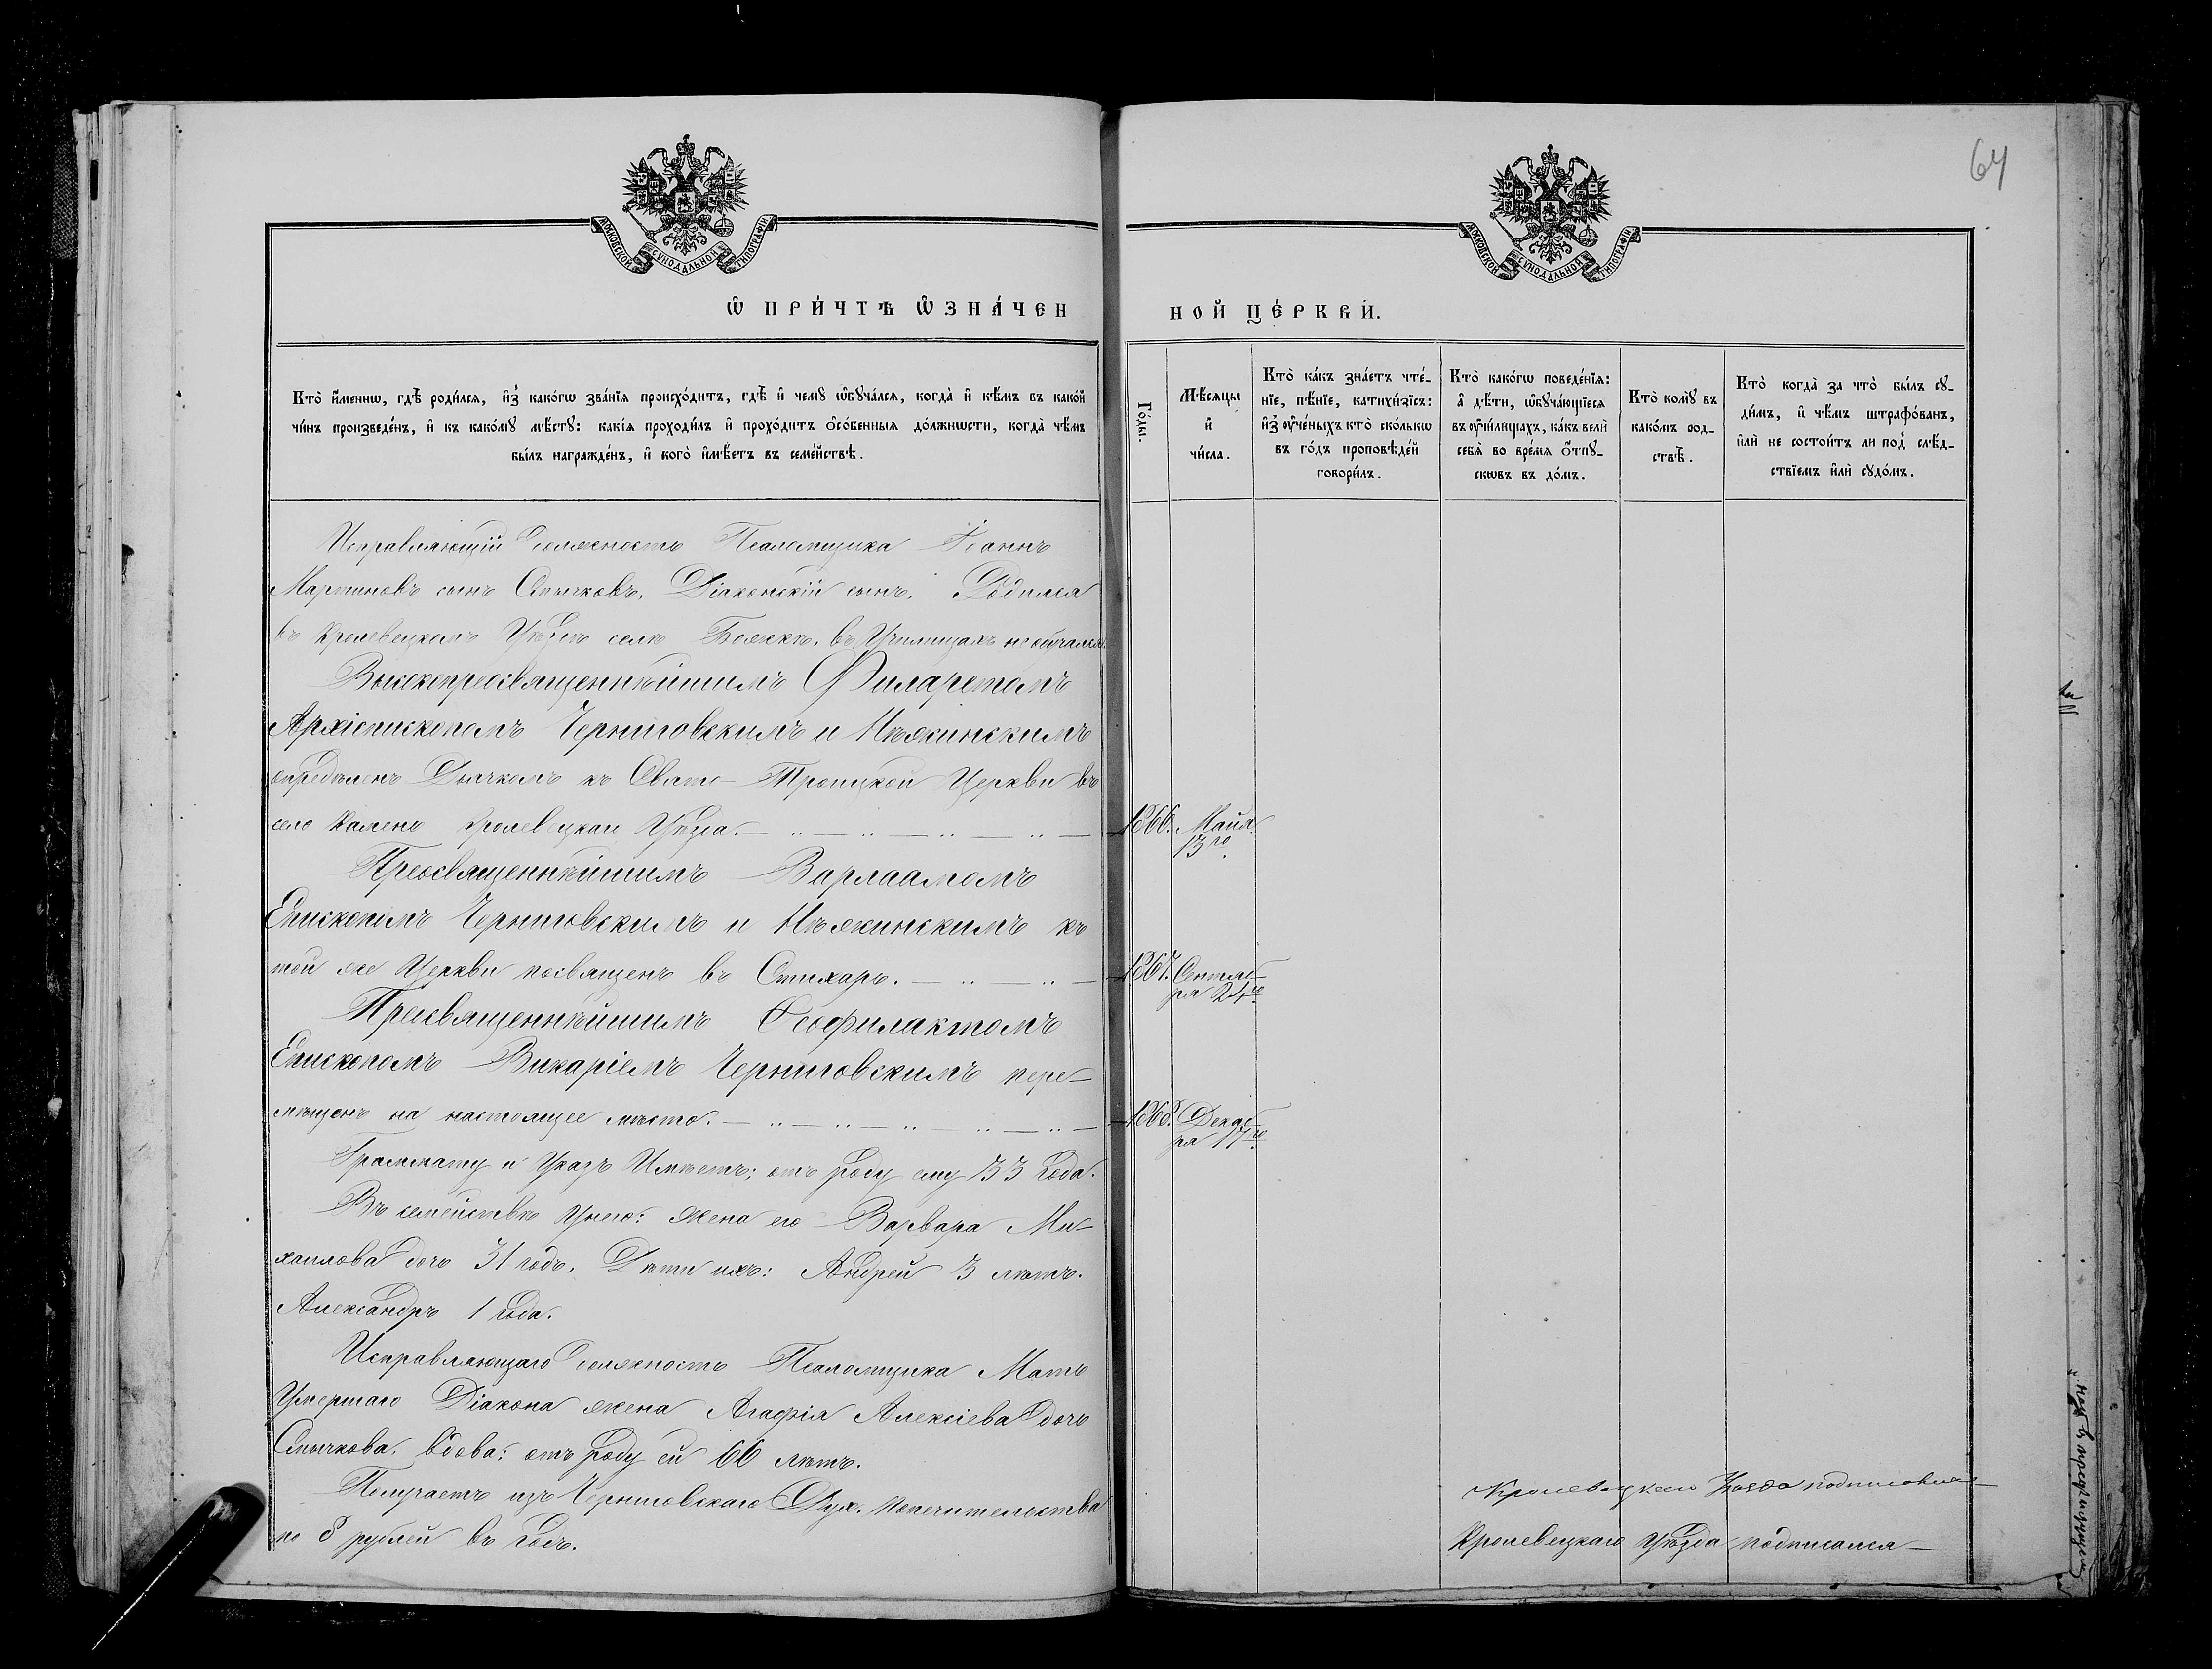 64
МОСКОВСКОЙ СУНОДАЛЬНОЙ ТИПОГРАФІИ
МОСКОВСКОЙ СУНОДАЛЬНОЙ ТИПОГРАФІИ
Ѡ ПРИ́ЧТѢ ѠЗНА́ЧЕН
НОЙ ЦЕ́РКВИ.
Кто̀ и҆́меннѡ, гдѣ̀ роди́лся, и҆з̾ како́гѡ зва́нїя происхо́дитъ, гдѣ̀ и҆ чемꙋ̀ ѡ҆бꙋча́лся, когда̀ и҆ кѣ́мъ въ како́й
чи́нъ произведе́нъ, и҆ къ како́мꙋ мѣ́стꙋ: какі́я проходи́лъ и҆ прохо́дитъ о҆со́бенныя до́лжнѡсти, когда̀ чѣ́мъ
бы́лъ награжде́нъ, и҆ кого̀ и҆мѣ́етъ въ семе́йствѣ.
Го́ды.
Мѣ́сяцы
и҆
чи́сла.
Кто̀ ка́къ зна́етъ чте́-
нїе, пѣ́нїе, катихи́зїсъ:
и҆з̾ ᲂу҆че́ныхъ кто̀ ско́лькѡ
въ го́дъ проповѣ́дей
говори́лъ.
Кто̀ како́гѡ поведе́нїя:
а҆ дѣ́ти, ѡ҆бꙋча́ющїеся
въ ᲂу҆чи́лищахъ, ка́къ велѝ
себѧ̀ во вре́мя о҆́тпꙋ-
скѡвъ въ до́мъ.
Кто̀ комꙋ̀ въ
како́мъ род-
ствѣ̀.
Кто̀ когда̀ за что̀ бы́лъ сꙋ-
ди́мъ, и҆ чѣ́мъ штрафо́ванъ,
и҆лѝ не состои́тъ ли под̾ слѣ́д-
ствїемъ и҆лѝ сꙋдо́мъ.
Исправляющій должность Псаломщика Іаннъ
Мартиновъ сынъ Смычковъ, Діаконскій сынъ. Родился
въ Кролевецкомъ Уѣздѣ селѣ Божкѣ, въ Училищахъ не обучался.
Высокопреосвященнѣйшимъ Филаретомъ
Архіепископомъ Черниговскимъ и Нѣжинскимъ
опредѣленъ Дьячкомъ къ Свято-Троицкой Церкви въ
село Камень Кролевецкаго Уѣзда.
1866. Майя
13го.
Преосвященнѣйшимъ Варлаамомъ
Епископомъ Черниговскимъ и Нѣжинскимъ къ
той же Церкви посвященъ въ Стихарь.
1867. Сентяб-
ря 24го.
Преосвященнѣйшимъ Ѳеофилактомъ
Епископомъ Викаріемъ Черниговскимъ пере-
мѣщенъ на настоящее мѣсто.
1868. Декаб-
ря 17го.
Граммату и Указъ Имѣетъ; отъ роду ему 33 года.
Въ семействѣ Унего: жена его Варвара Ми-
хаилова дочь 31 годъ, Дѣти ихъ: Андрей 3 лѣтъ.
Александръ 1 года.
Исправляющаго должность Псаломщика Мать
Умершаго Діакона жена Агафія Алексіева дочь
Смычкова, вдова; отъ роду ей 66 лѣтъ.
Получаетъ изъ Черниговскаго Дух. попечительства
по 8 рублей въ годъ.
Кролевецкаго Уѣзда подписался
Кролевецкаго Уѣзда подписался